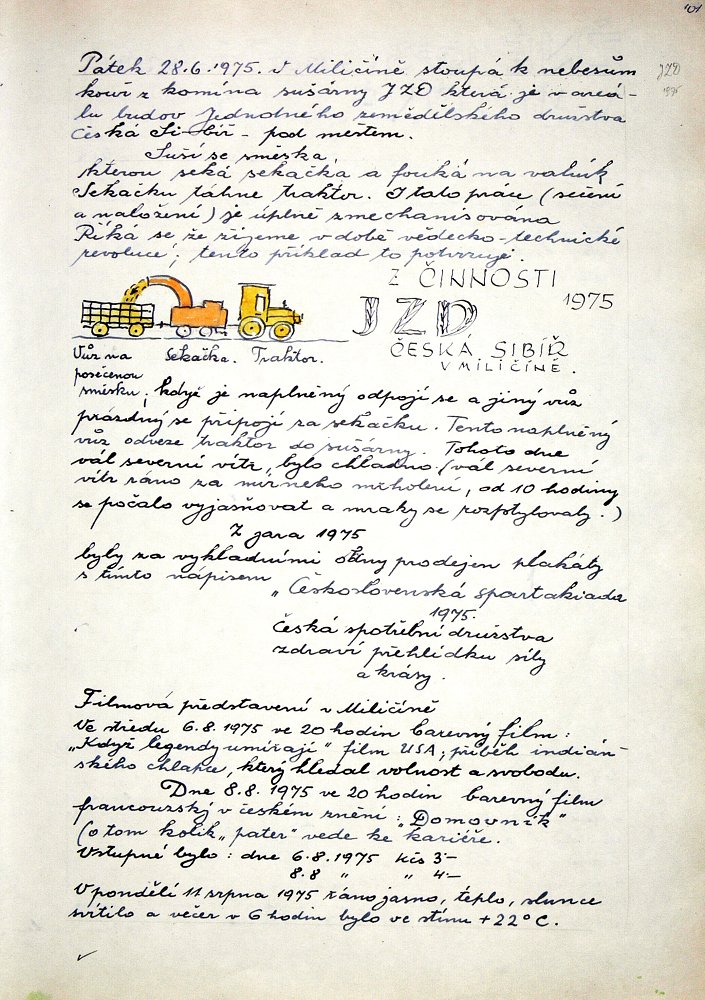 101
Pátek 28.6.1975. v Miličíně stoupá k nebesům
JZD
1975
kouř z komína sušárny JZD která je v areá-
lu budov Jednotného zemědělského družstva
Česká Si-biř - pod městem.
Suší se směska,
kterou seká sekačka a fouká na valník
Sekačku táhne traktor. I tato práce (sečení
a naložení) je úplně zmechanisována
Říká se že žijeme v době vědecko-technické
revoluce; tento příklad to potvrzuje.
Z ČINNOSTI
JZD 1975
ČESKÁ SIBIŘ
V MILIČÍNĚ.
Vůz na Sekačka. Traktor.
posečenou
směsku; když je naplněný odpojí se a jiný vůz
prázdný se připojí za sekačku. Tento naplněný
vůz odveze traktor do sušárny. Tohoto dne
vál severní vítr, bylo chladno. (vál severní
vítr ráno za mírného mrholení, od 10 hodiny
se počalo vyjasňovat a mraky se rozptylovaly.)
Z jara 1975
byly za vykladními okny prodejen plakáty
s tímto nápisem „Československá spartakiada
1975.
Česká spotřební družstva
zdraví přehlídku síly
a krásy.
Filmová představení v Miličíně
Ve středu 6.8.1975 ve 20 hodin barevný film:
„Když legendy umírají" film USA; příběh indián-
ského chlapce, který hledal volnost a svobodu.
Dne 8.8.1975 ve 20 hodin barevný film
francouzský v českém znění: „Domovník"
(o tom kolik „pater" vede ke kariéře.
Vstupné bylo: dne 6.8.1975 Kčs 3-
8.8 „ „ 4-
V pondělí 11 srpna 1975 ráno jasno, teplo, slunce
svítilo a večer v 6 hodin bylo ve stínu +22°C.